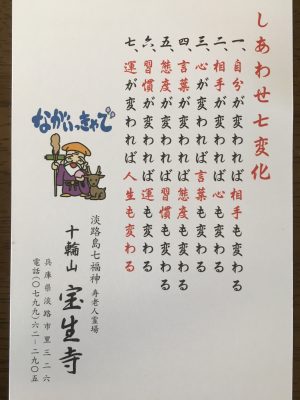 しあわせ七変化
一、自分が変われば相手も変わる
二、相手が変われば心も変わる
三、心が変われば言葉も変わる
四、言葉が変われば態度も変わる
五、態度が変われば習慣も変わる
六、習慣が変われば運も変わる
七、運が変われば人生も変わる
ながいっきゃで
淡路島七福神 寿老人霊場
十輪山 宝生寺
兵庫県淡路市里三二六
電話(〇七九九)六二-二九〇五